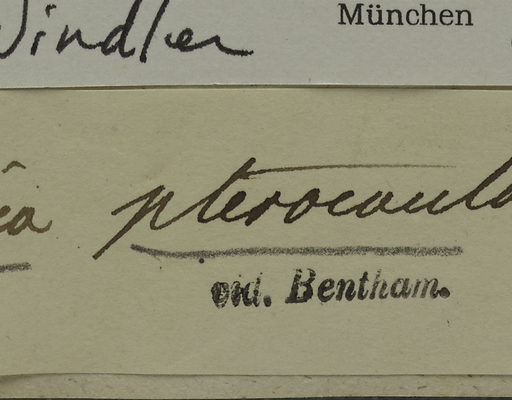 Windler München
ea pterocaula
vid. Bentham.